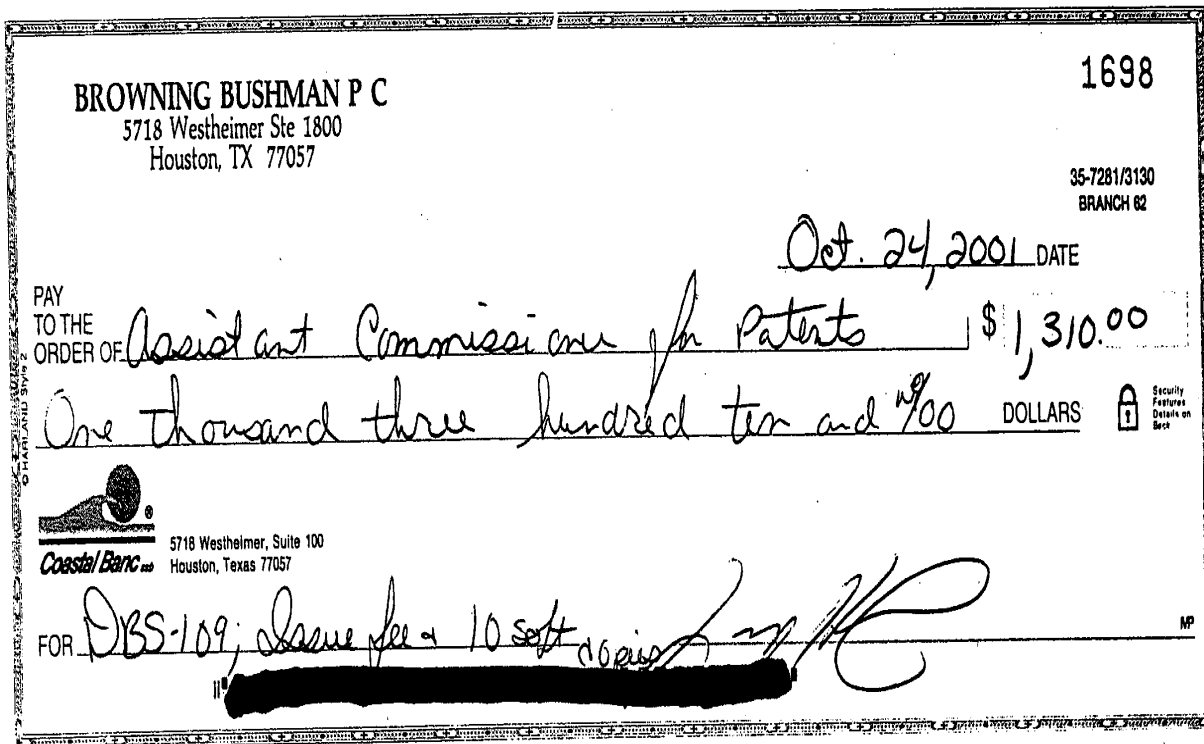 BROWNING BUSHMAN P C
5718 Westheimer Ste 1800
Houston, TX 77057
1698
35-7281/3130
BRANCH 62
Oct. 24, 2001 DATE
PAY
TO THE
ORDER OF Assistant Commissioner for Patents $ 1,310.00
One thousand three hundred ten and no/00 DOLLARS
Security
Features
Details on
Back
© HARLAND Style 2
Coastal Banc ssb
5718 Westheimer, Suite 100
Houston, Texas 77057
FOR DBS-109; Issue fee & 10 soft copies
MP